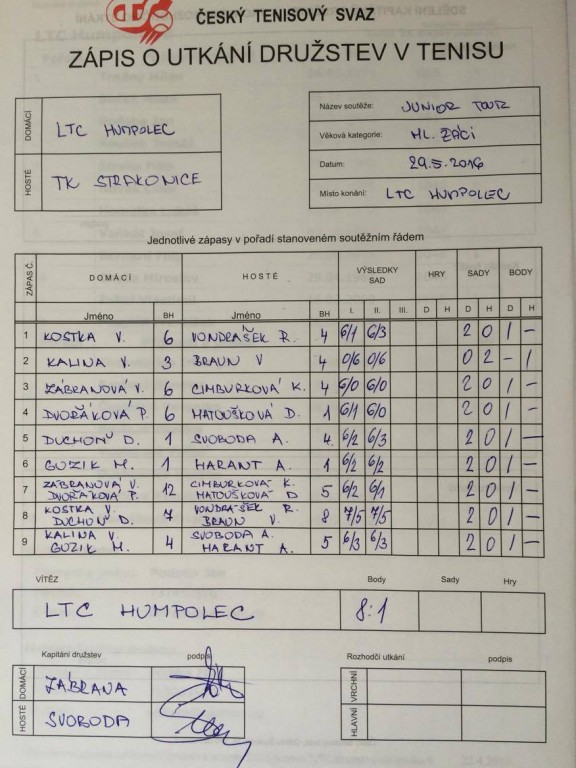 ČESKÝ TENISOVÝ SVAZ
ZÁPIS O UTKÁNÍ DRUŽSTEV V TENISU
DOMÁCÍ LTC HUMPOLEC
HOSTÉ TK STRAKONICE
Název soutěže: JUNIOR TOUR
Věková kategorie: ML. ŽÁCI
Datum: 29.5.2016
Místo konání: LTC HUMPOLEC
Jednotlivé zápasy v pořadí stanoveném soutěžním řádem
ZÁPAS Č. DOMÁCÍ HOSTÉ VÝSLEDKY SAD HRY SADY BODY
Jméno BH Jméno BH I. II. III. D H D H D H
1 KOSTKA V. 6 VONDRAŠEK R. 4 6/1 6/3 2 0 1 -
2 KALINA V. 3 BRAUN V 4 0/6 0/6 0 2 - 1
3 ZÁBRANOVÁ V. 6 CIMBURKOVÁ K. 4 6/0 6/0 2 0 1 -
4 DVOŘÁKOVÁ P. 6 MATOUŠKOVÁ D. 1 6/1 6/0 2 0 1 -
5 DUCHOŇ D. 1 SVOBODA A. 4 6/2 6/3 2 0 1 -
6 GUZIK M. 1 HARANT A. 1 6/2 6/2 2 0 1 -
7 ZÁBRANOVÁ V. DVOŘÁKOVÁ P. 12 CIMBURKOVÁ K. MATOUŠKOVÁ D 5 6/2 6/1 2 0 1 -
8 KOSTKA V. DUCHOŇ D. 7 VONDRAŠEK R. BRAUN V. 8 7/5 7/5 2 0 1 -
9 KALINA V. GUZIK M. 4 SVOBODA A. HARANT A. 5 6/3 6/3 2 0 1 -
VÍTĚZ Body Sady Hry
LTC HUMPOLEC 8:1
Kapitáni družstev podpis Rozhodčí utkání podpis
DOMÁCÍ ZÁBRANA VRCHNÍ
HOSTÉ SVOBODA HLAVNÍ